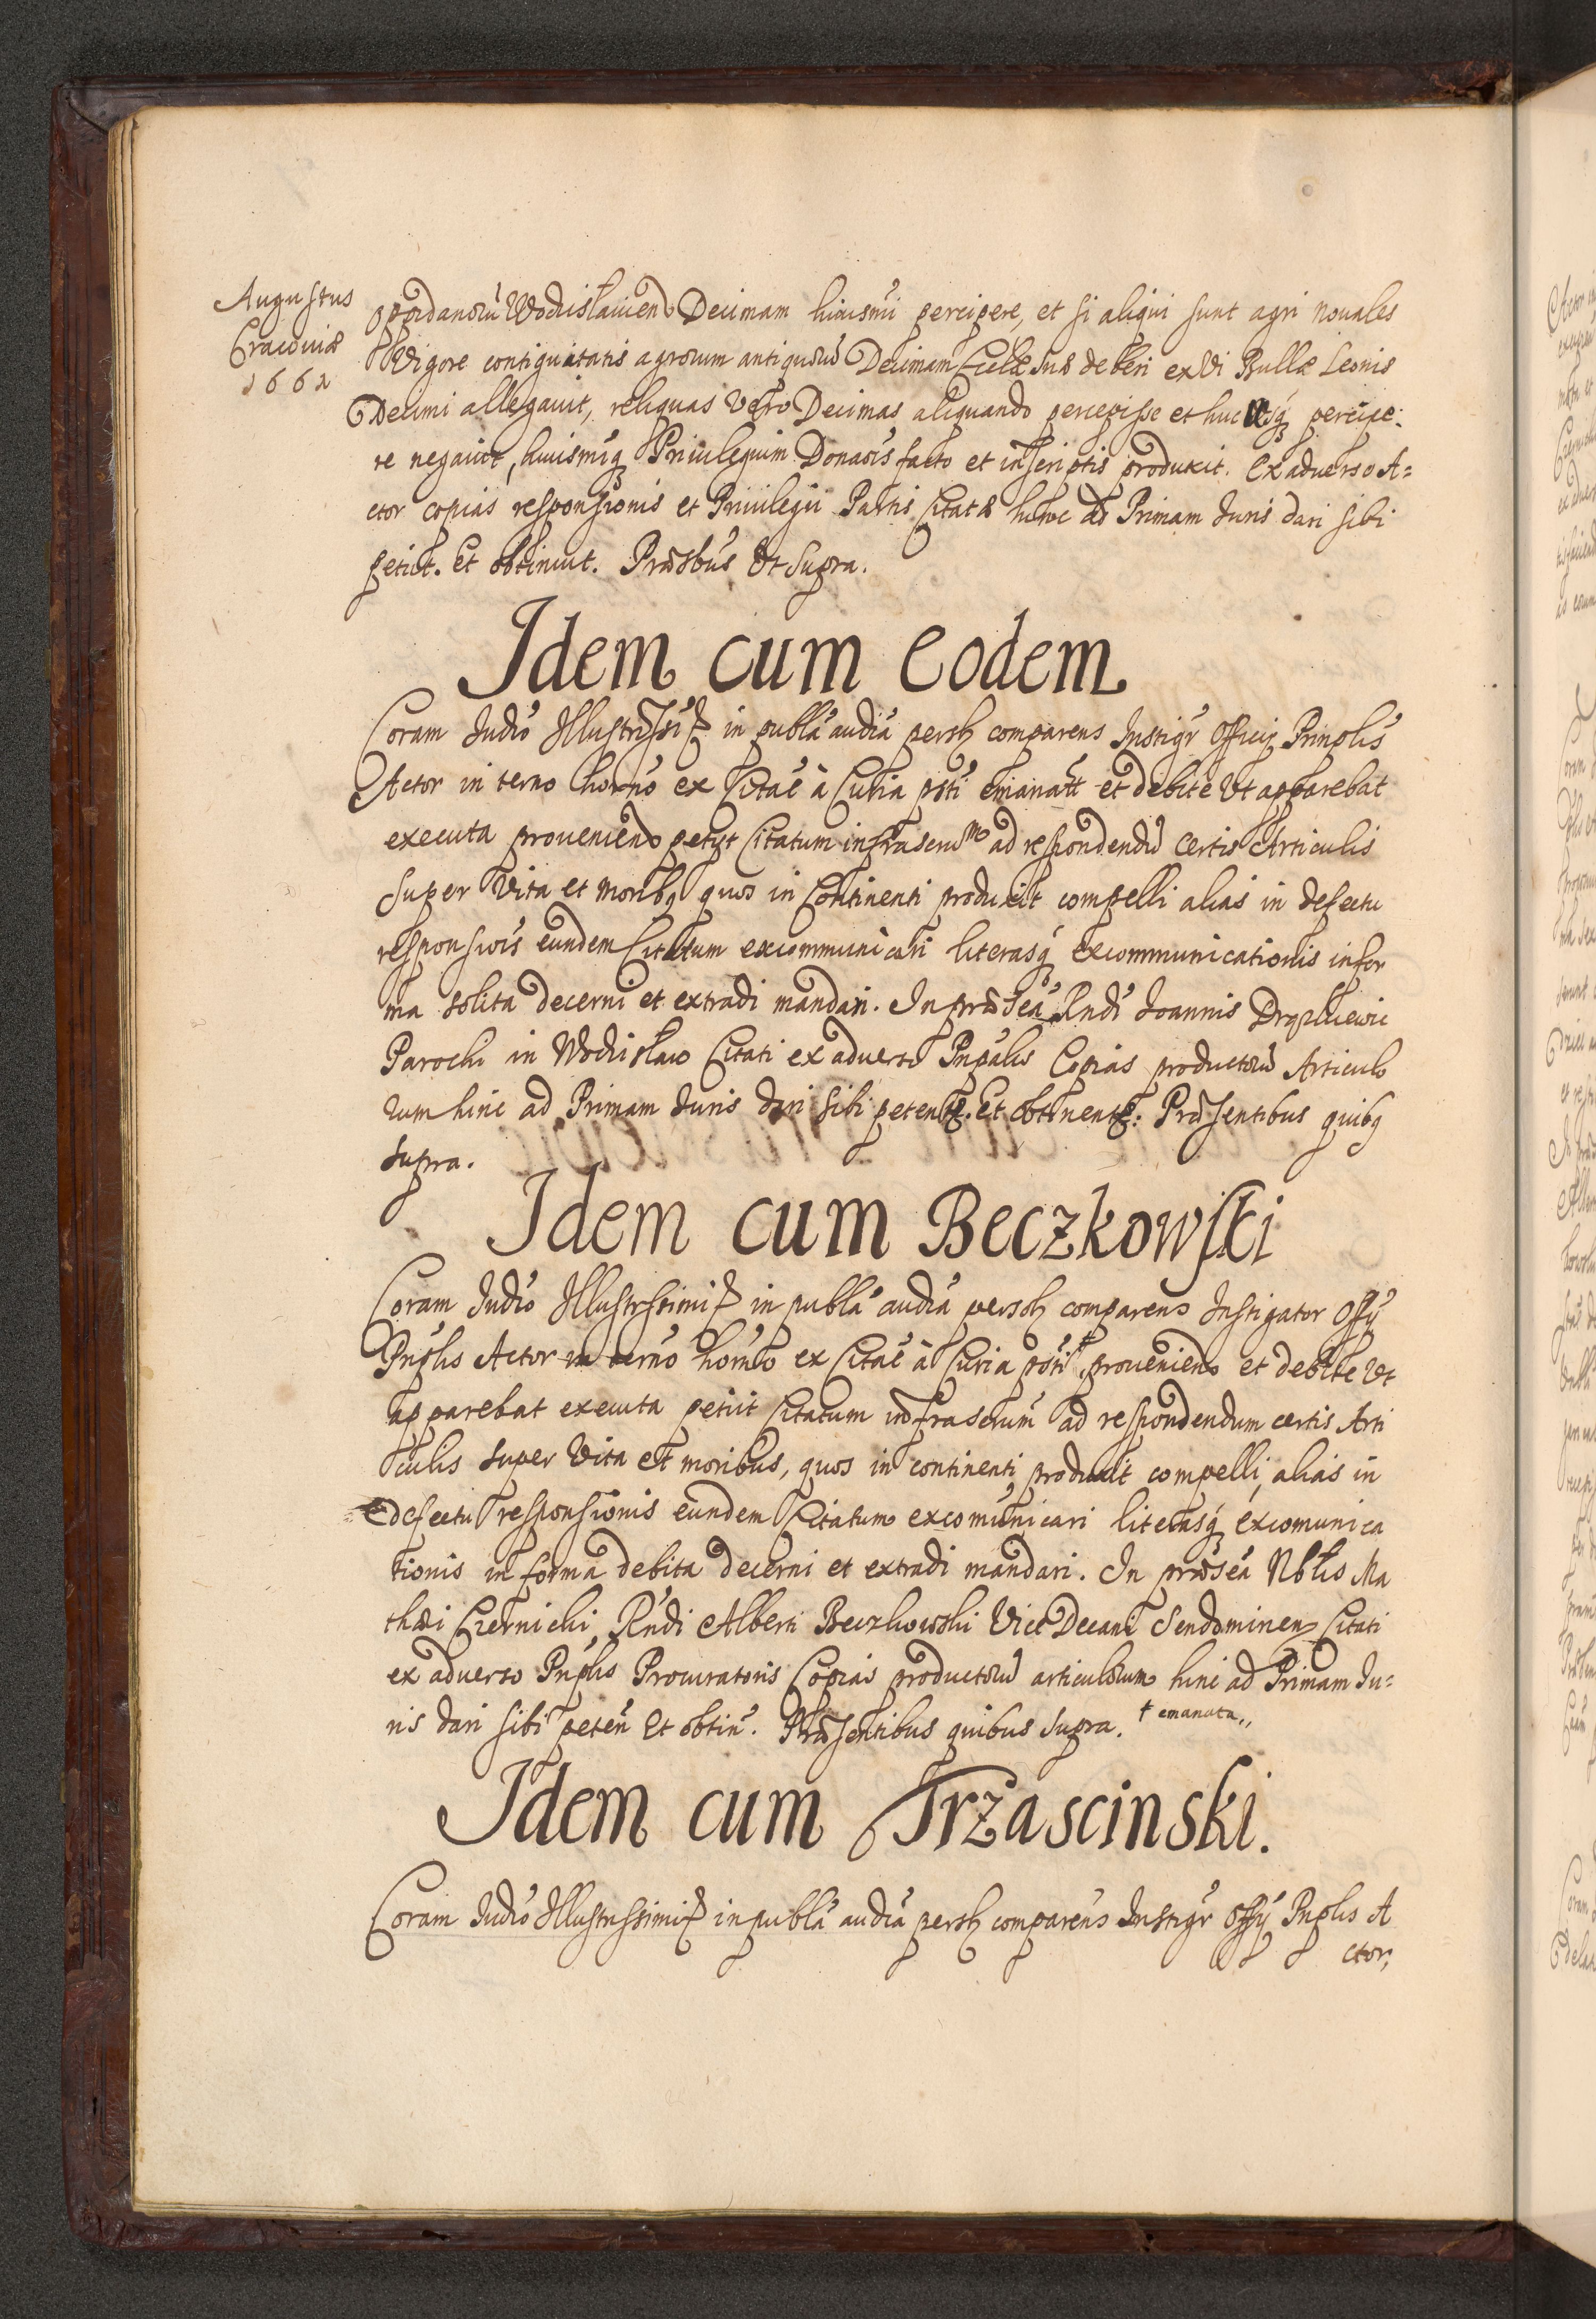 Augustus
Cracoviæ
1662
oppidanorū Wodislavien Decimam huiusmi percipere, et si aliqui sunt agri novales
Vigore contiguitatis agrorum antiquorū Decimam Ecclæ suæ deberi ex Vi Bullæ Leonis
Decimi allegavit, reliquas Vero Decimas aliquando percepisse et huc Usq percipe:
re negavit, huiusmiq Privilegium Donaois facto et in scriptis produxit. Ex adverso A=
ctor copias responsionis et Privilegii Partis Citatæ hinc ad Primam Juris dari sibi
petiit. Et obtinuit. Præsbus Ut Supra.
Idem cum Eodem
Coram Judio Illustrissi in publa audia persr comparens Instigr Officii Prinplis
Actor in termo horno ex Citae à Curia psti emanatt et debite Ut apparebat
executa provenien petyt Citatum infrascrum ad respondendū certis Articulis
Super Vita et moribq quos in Continenti produxit compelli alias in defectu
responsiois eundem Citatum excommunicari literasq excommunicationis in for
ma solita decerni et extradi mandari. In præsea Rndi Joannis Drozkiewic
Parochi in Wodislaw Citati ex adverso Pnpalis Copias productorū Articulo
rum hinc ad Primam Juris dari sibi petente. Et obtinente: Præsentibus quibq
supra.
Idem cum Beczkowski
Coram Judio Illustrissimi in publa audia persr comparens Instigator Offy
Pnplis Actor in termo horno ex Citae à Curia psti † provenien et debite Ut
apparebat executa petiit Citatum infrascrum ad respondendum certis Arti
culis super Vita et moribus, quos in continenti produxit compelli, alias in
defectu responsionis eundem Citatum excomunicari literasq excomunica
tionis in forma debita decerni et extradi mandari. In præsea Nblis Ma
thæi Czernicki, Rndi Alberti Beczkowski Vice Decani Sendomirien Citati
ex adverso Pnplis Procuratoris Copias productorū articulorum hinc ad Primam Ju=
ris dari sibi peten Et obtin. Præsentibus quibus supra. † emanata,,
Idem cum Trzascinski.
Coram Judio Illustrissimi in publa audia persr comparens Instigr Offy Pnplis A
ctor,